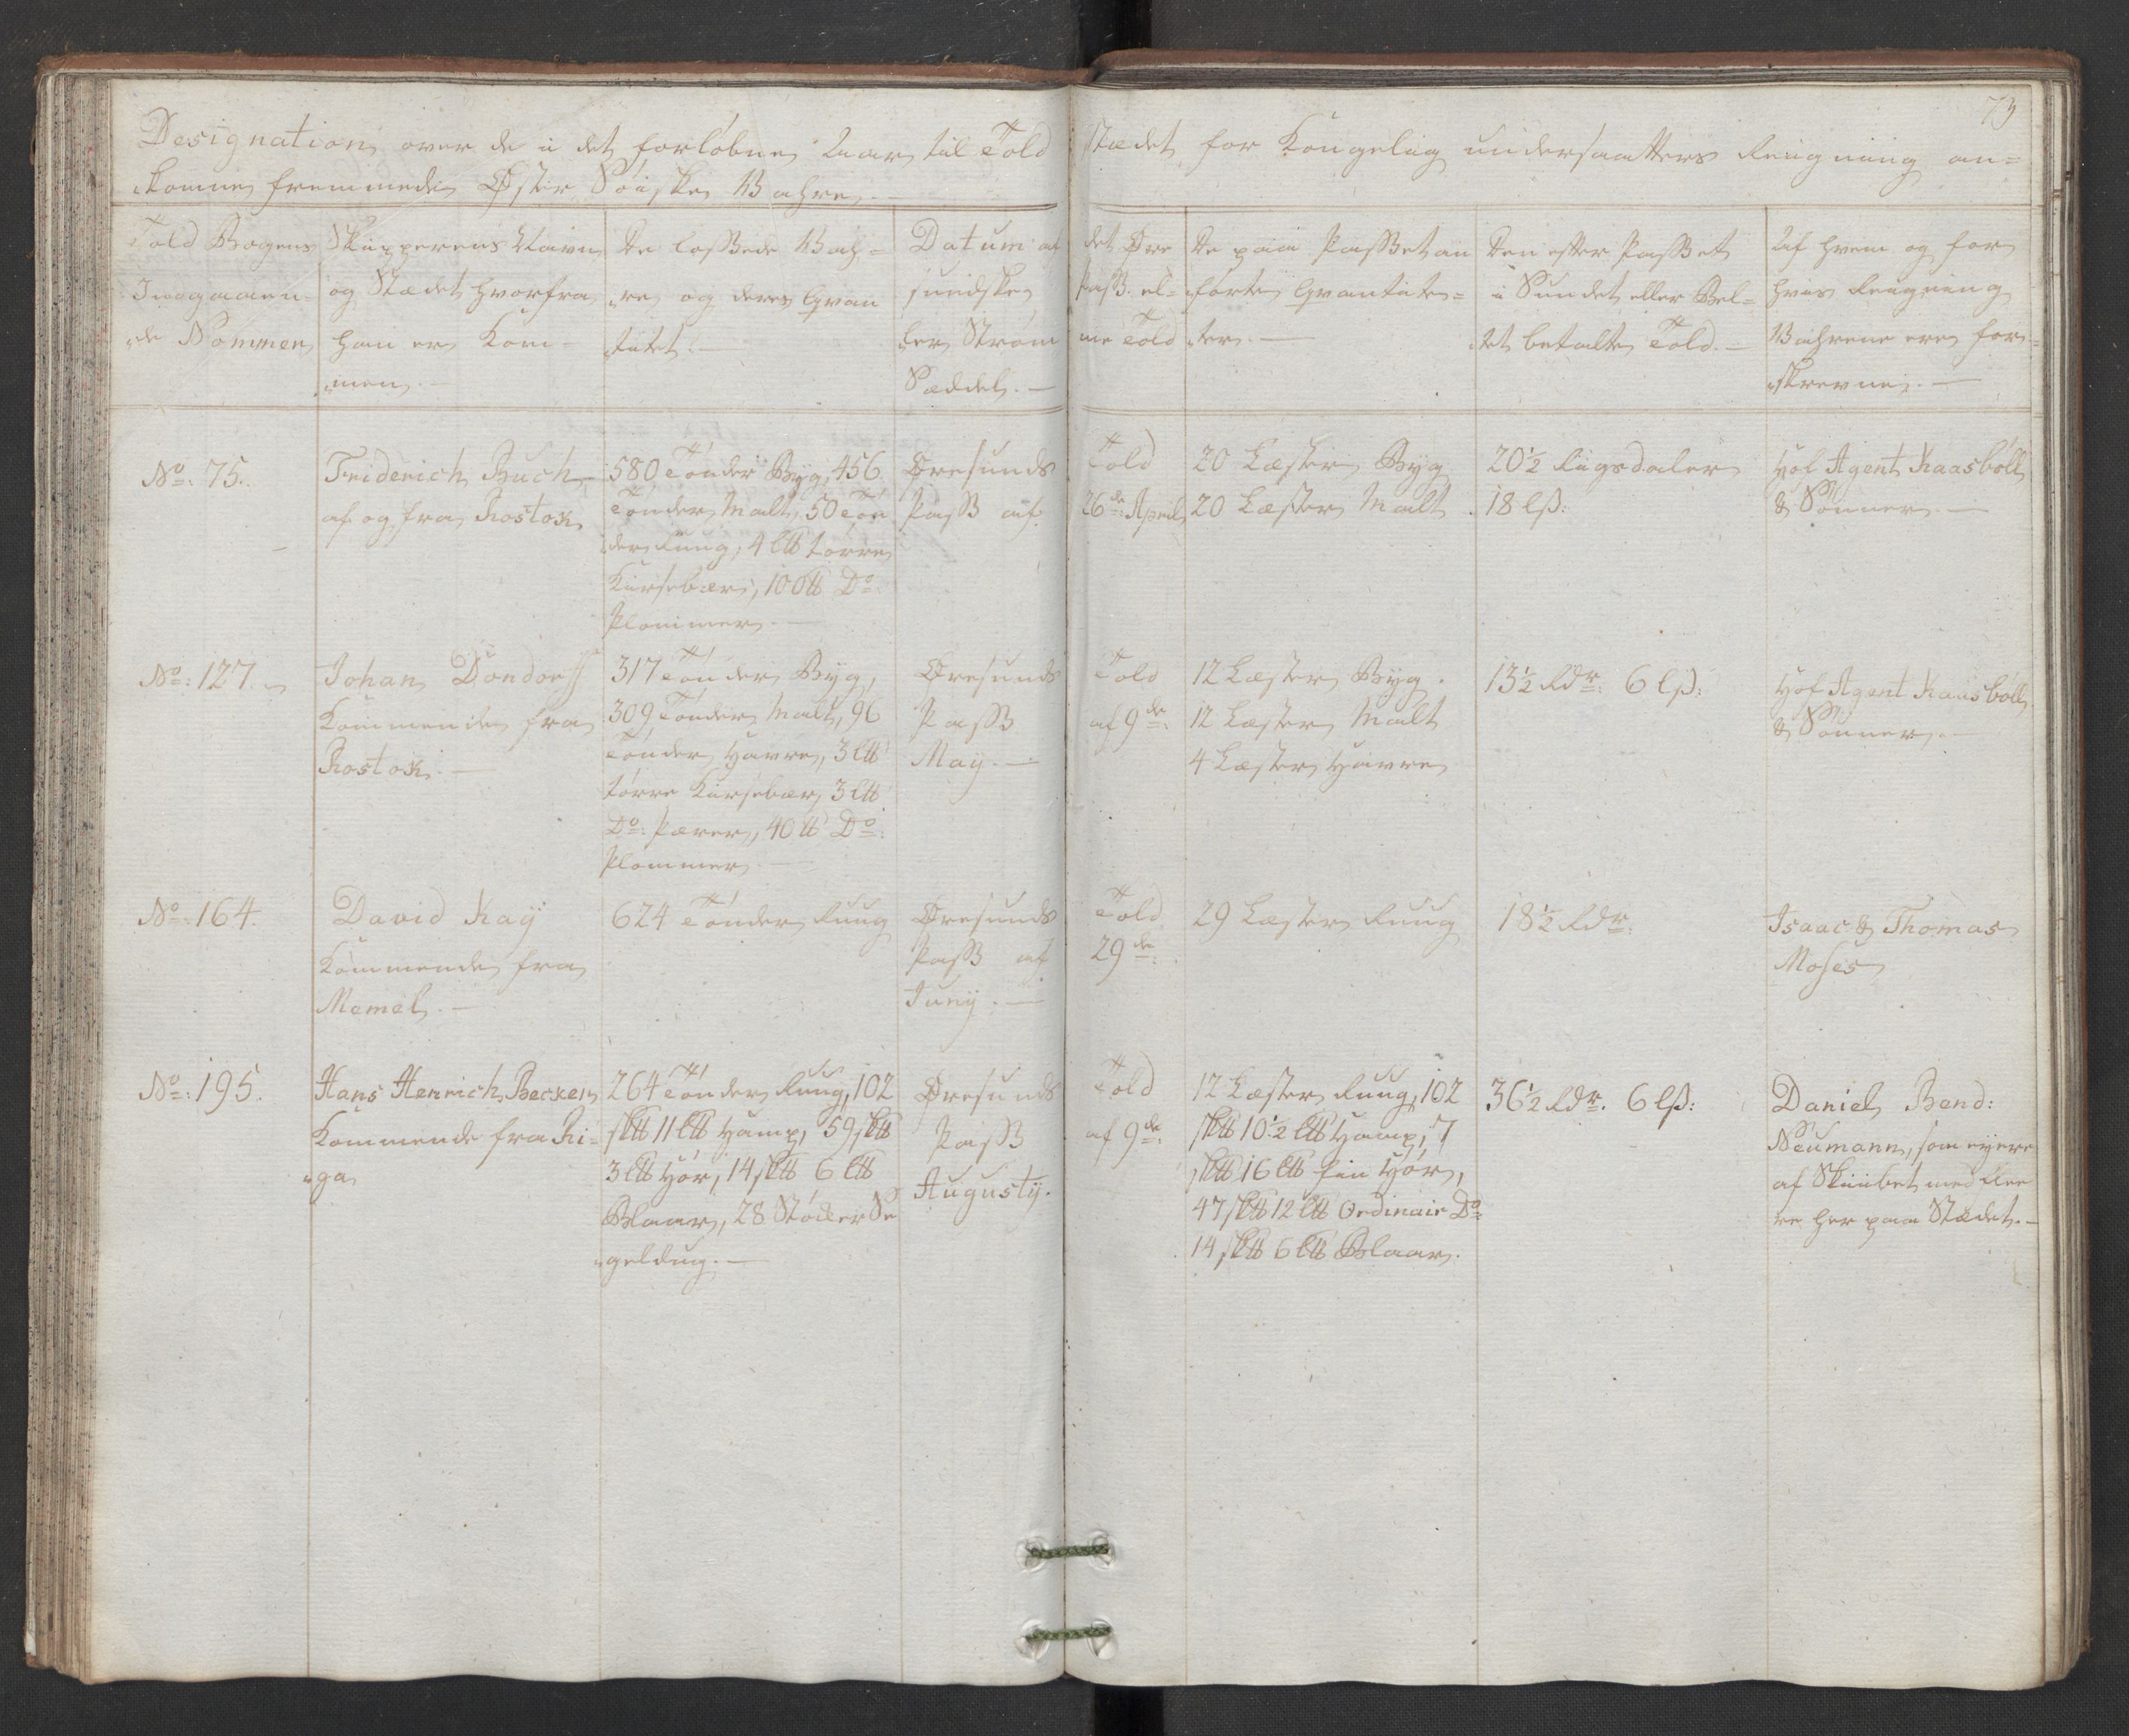 73
Designation over de i det forløbne Aar til Told Stædet for Kongelig undersaatters Reigning an=
komne fremmede Øster Søiske Wahre.
Told Bogens
Indgaaen=
de Nommer
Skipperens Navn
og Stædet hvorfra
han er Kom-
men.
De lossede Wah=
re og deres Qvan
titet.
Datum af det Øre
sundske Pass el=
ler Strøm me Told
Sæddel.
De paa Passet an
førte Qvantite=
ter.
Den efter Passet
i Sundet eller Bel=
tet betalte Told.
Af hvem og for
hvis Reigning
Wahrene ere for=
skrevne.
No: 75.
Friderich Buch
af og fra Rostok
580 Tønder Byg, 456
Tønder Malt, 50 Tøn
der Rug, 4 L℔ tørre
Kirsebær, 100 ℔ Do:
Plommer
Øresunds Told
Pass af 26de April
20 Læster Byg
20 Læster Malt
20½ Rigsdaler
18 lß:
Hof Agent Kaasbøll
& Sønner.
No: 127.
Johan Dondorff
Kommende fra
Rostok.
317 Tønder Byg,
309 Tønder Malt, 96
Tønder Havre, 3 L℔
tørre Kirsebær, 3 L℔
Do: Pærer, 40 ℔ Do:
Plommer.
Øresunds Told
Pass af 9de:
May.
12 Læster Byg.
12 Læster Malt
4 Læster Havre
13½ Rdr: 6 lß:
Hof Agent Kaasbøll
& Sønner.
No: 164.
David Kay
Kommende fra
Memel.
624 Tønder Rug
Øresunds Told
Pass af 29de:
Juny.
29 Læster Rug
18½ Rdr:
Isaac & Thomas
Moses
No: 195.
Hans Henrich Becker
Kommende fra Ri=
ga
264 Tønder Rug, 102
sk℔ 11 L℔ Hamp, 59 sk℔
3 L℔ Hør, 14 sk℔ 6 L℔
Blaar, 28 Støcker Se
geldug.
Øresunds Told
Pass af 9de:
Augusty.
12 Læster Rug, 102
sk℔ 10½ L℔ Hamp, 7
sk℔ 16 L℔ fin Hør,
47 sk℔ 12 L℔ Ordinair Do
14 sk℔ 6 L℔ Blaar.
36½ Rdr. 6 lß:
Daniel Bend:
Neumann, som eyere
af Skibet med flee
re her paa Stædet.